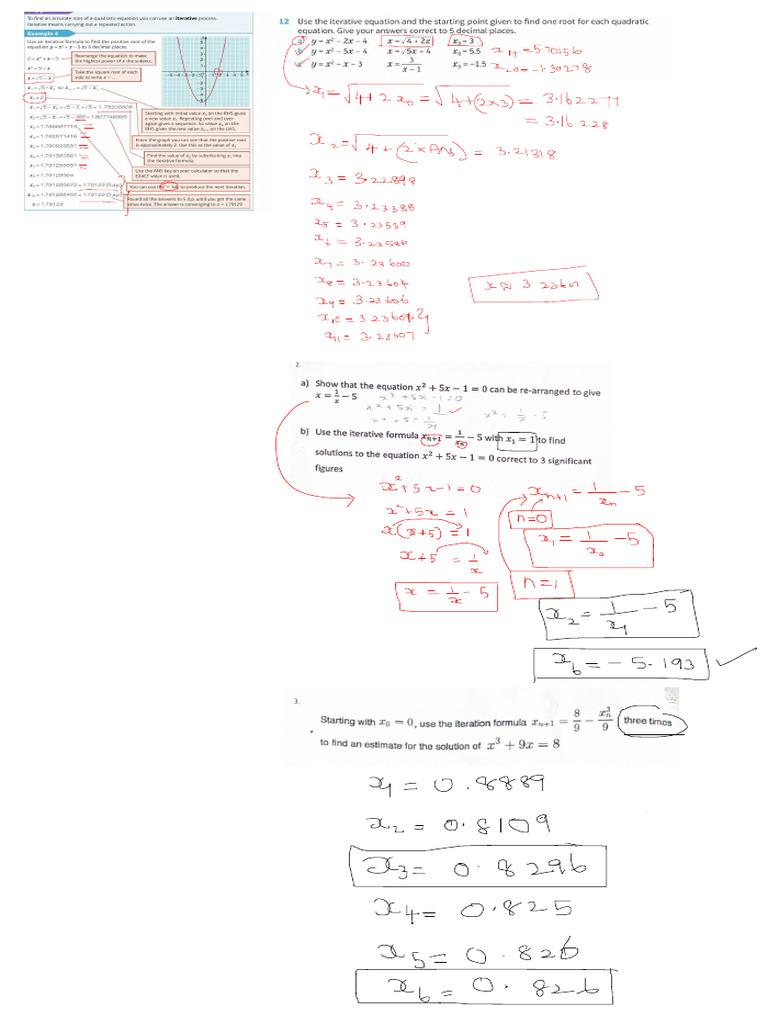 To find an accurate root of a quadratic equation you can use an iterative process.
Iterative means carrying out a repeated action.
Example 4
Use an iterative formula to find the positive root of the
equation y = x² + x − 5 to 5 decimal places.
0 = x² + x − 5
Rearrange the equation to make
the highest power of x the subject.
x² = 5 − x
x = √5 − x
Take the square root of each
side to write x = ...
x₀ = 2
Starting with initial value x₀ on the RHS gives
a new value x₁. Repeating over and over
again gives a sequence. So value xₙ on the
RHS gives the new value xₙ₊₁ on the LHS.
From the graph you can see that the positive root
is approximately 2. Use this as the value of x₀
Find the value of x₂ by substituting x₁ into
the iterative formula.
Use the ANS key on your calculator so that the
EXACT value is used.
You can use the '=' key to produce the next iteration.
Round all the answers to 5 d.p. until you get the same
value twice. The answer is converging to x = 1.79129
x = 1.79129
12 Use the iterative equation and the starting point given to find one root for each quadratic
equation. Give your answers correct to 5 decimal places.
a y = x² − 2x − 4 x = √4 + 2x x₀ = 3 x₁₄ = 5.70156
b y = x² − 5x − 4 x = √5x + 4 x₀ = 5.5
c y = x² − x − 3 x = 3/(x − 1) x₀ = −1.5 = −1.30278
x₁ = √4 + 2x₀ = √4 + (2×3) = 3.1622777
= 3.16228
x₂ = √4 + (2×ANS) = 3.21318
x₃ = 3.22898
x₄ = 3.23388
x₅ = 3.23539
x₆ = 3.23586
x₇ = 3.23600
x₈ = 3.23604
x₉ = 3.23606
x₁₀ = 3.23607
x₁₁ = 3.23607
x ≈ 3.23607
2.
a) Show that the equation x² + 5x − 1 = 0 can be re-arranged to give
x = 1/x − 5
x² + 5x − 1 = 0
x² + 5x = 1
b) Use the iterative formula xₙ₊₁ = 1/xₙ − 5 with x₁ = 1 to find
solutions to the equation x² + 5x − 1 = 0 correct to 3 significant
figures
x² + 5x − 1 = 0
x² + 5x = 1
x(x + 5) = 1
x + 5 = 1/x
x = 1/x − 5
xₙ₊₁ = 1/xₙ − 5
n = 0
x₁ = 1/x₀ − 5
n = 1
x₂ = 1/x₁ − 5
x₆ = − 5.193
3.
Starting with x₀ = 0, use the iteration formula xₙ₊₁ = 8/9 − xₙ³/9 three times
to find an estimate for the solution of x³ + 9x = 8
x₁ = 0.8889
x₂ = 0.8109
x₃ = 0.8296
x₄ = 0.825
x₅ = 0.826
x₆ = 0.826